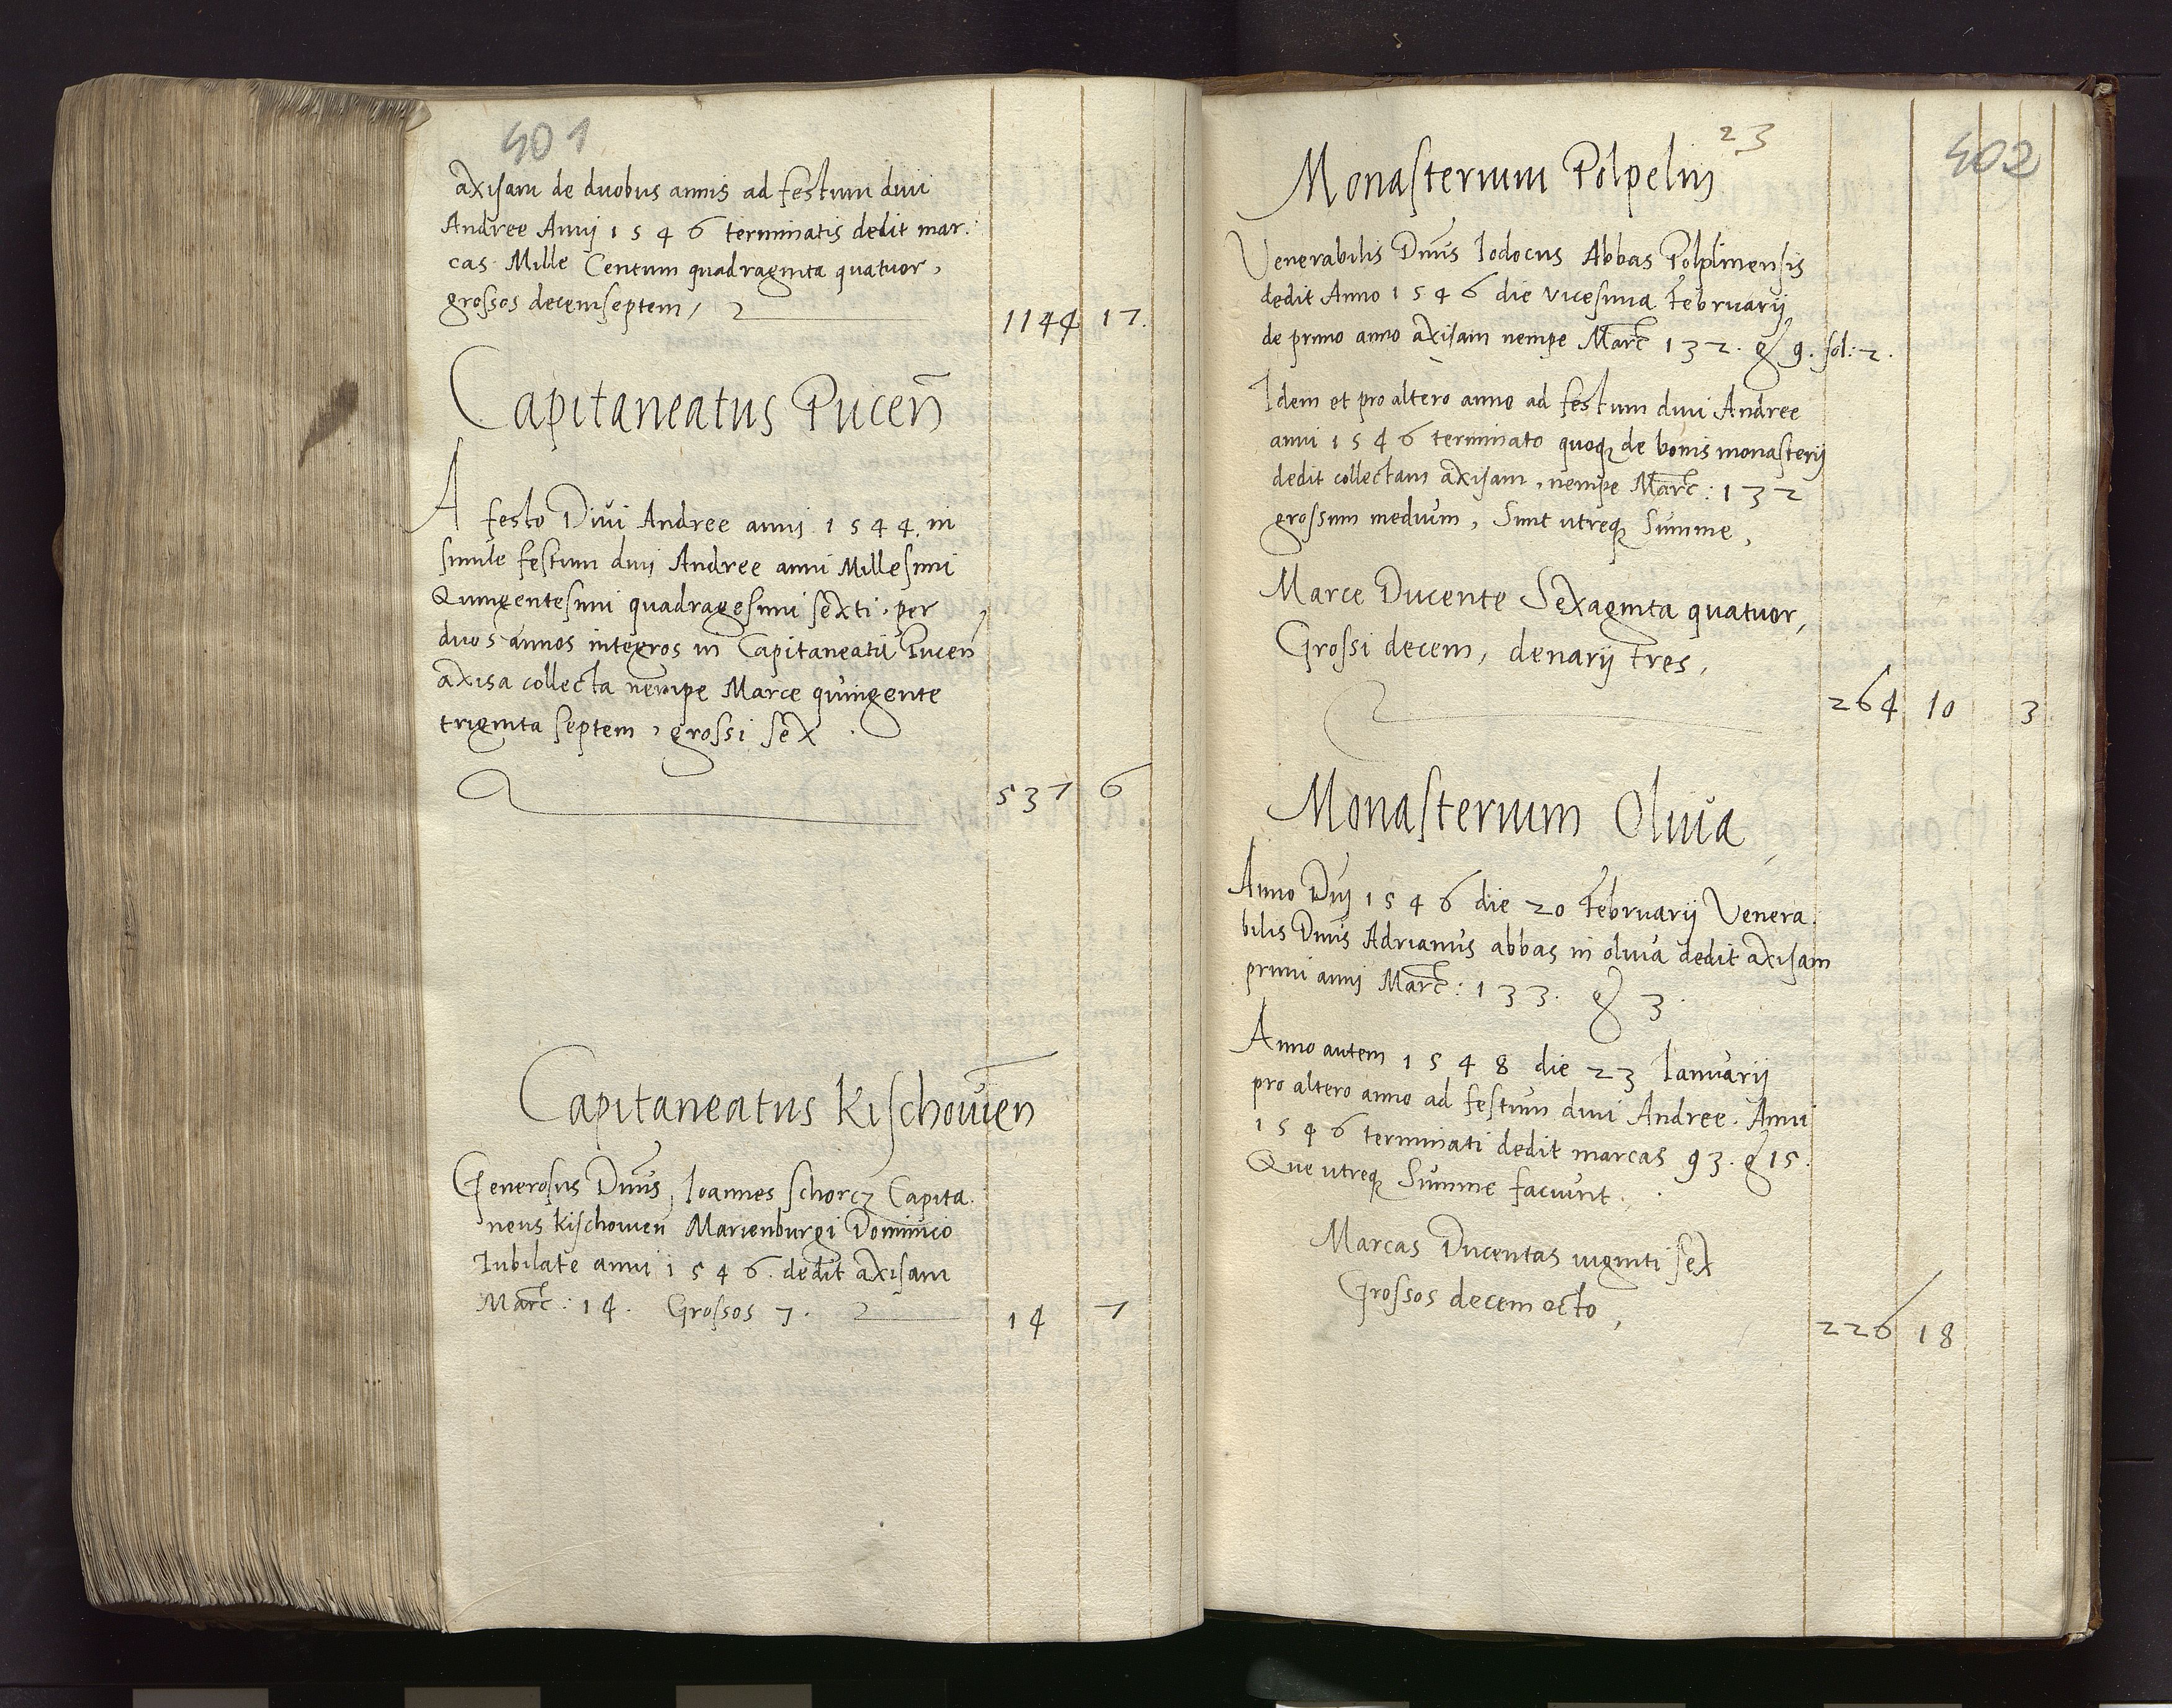 401
axisam de duobus annis ad festum diui
Andree Annj 1546 terminatis dedit mar:
cas Mille Centum quadraginta quatuor,
grossos decemseptem, 1144 17.
Capitaneatus Pucen̄
A festo Diui Andree annj 1544. in
simile festum diuj Andree anni Millesimi
Quingentesimi quadragesimi sexti, per
duos annos integros in Capitaneatu Pucen̄
axisa collecta nempe Marce quingente
triginta septem, grossi sex.
537 6
Capitaneatus Kischowen̄
Generosus Dn̄us, Ioannes Schorcz Capita:
neus Kischowen̄ Marienburgi Dominico
Iubilate anni 1546. dedit axisam
Marc: 14. Grossos 7. 14 7
23
402
Monasterium Polpelin
Venerabilis Dn̄us Iodocus Abbas Polplinensis
dedit Anno 1546 die vicesima Februarij
de primo anno axisam nempe Marc 132. g 9. sol: 2.
Idem et pro altero anno ad festum diui Andree
anni 1546 terminato quoq de bonis monasterij
dedit collectam axisam, nempe Marc: 132
grossum medium, Sunt utreq Summe,
Marce Ducente Sexaginta quatuor,
Grossi decem, denarij tres,
264 10 3
Monasterium Oliua
Anno Dn̄j 1546 die 20 Februarij Venera:
bilis Dn̄us Adrianus abbas in oliua dedit axisam
primi annj Marc: 133. g 3.
Anno autem 1548 die 23 Ianuarij
pro altero anno ad festum diui Andree. Anni
1546 terminati dedit marcas 93. g 15.
Que utreq Summe faciunt.
Marcas Ducentas uiginti sex
Grossos decem octo,
226 18